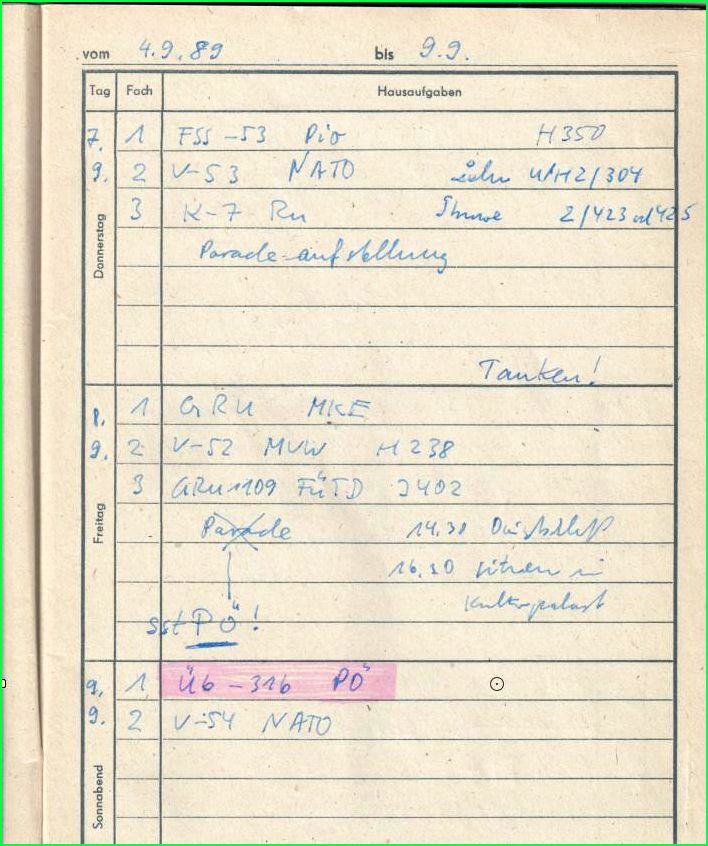 vom 4.9.89 bis 9.9.
Tag Fach Hausaufgaben
7. 1 FSS-53 Pio H350
9. 2 V-53 NATO 2/304
3 K-7 Ru 2/423 od 425
Donnerstag
Parade-aufstellung
Tanken!
8. 1 GRU MKE
9. 2 V-52 MVW H 238
3 GRU1109 FüTD 2402
Freitag
Parade 14.30
16.30 in
Kulturpalast
sst PÖ!
9. 1 Üb-316 PÖ
9. 2 V-54 NATO
Sonnabend